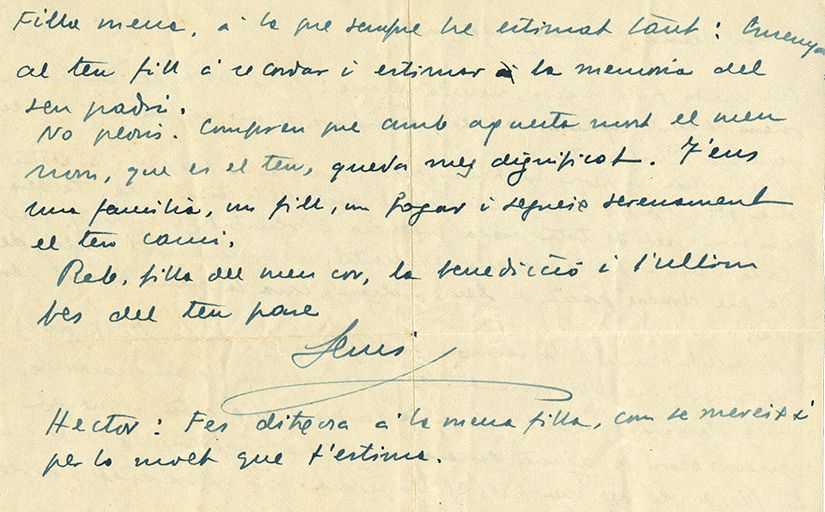 Filla meva, á la que sempre he estimat tant: Ensenya
al teu fill á recordar i estimar á la memoria del
seu padri.
No ploris. Compren que amb aquesta mort el meu
nom, que es el teu, queda mes dignificat. Tens
una familia, un fill, un fogar i segueix serenament
el teu cami.
Reb, filla del meu cor, la benedicció i l'ultim
bes del teu pare
Hector: Fes ditxosa á la meva filla, com se mereix i
per lo molt que t'estima.